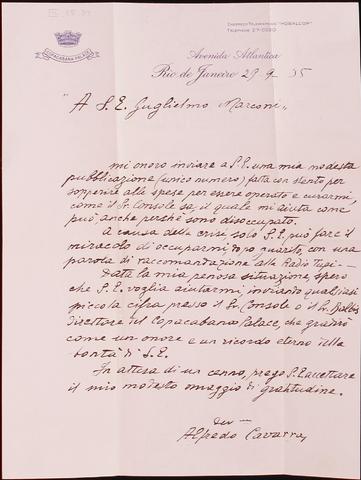 COPACABANA PALACE
TELEPHONE 27-0020
Avenida Atlantica
Rio de Janeiro 29 9 35
"A S. E. Guglielmo Marconi"
mi onoro inviare a S. E. una mia modesta
pubblicazione (unico numero) fatta con stento per
sopperire alle spese per essere operato e curarmi,
come il S. Console sa, il quale mi aiuta come
può, anche perché sono disoccupato.
A causa della crise solo S. E. può fare il
miracolo di occuparmi dopo guarito, con una
parola di raccomandazione alla Radio Tupi —
Data la mia penosa situazione, spero
che S. E. voglia aiutarmi, inviando qualsiasi
piccola cifra presso il Sr. Console o il Sr. Balbis
direttore del Copacabana Palace, che gradirò
come un onore e un ricordo eterno della
bontà di S. E.
In attesa di un cenno, prego S. E. accettare
il mio modesto omaggio di gratitudine.
Alfredo Cavarra